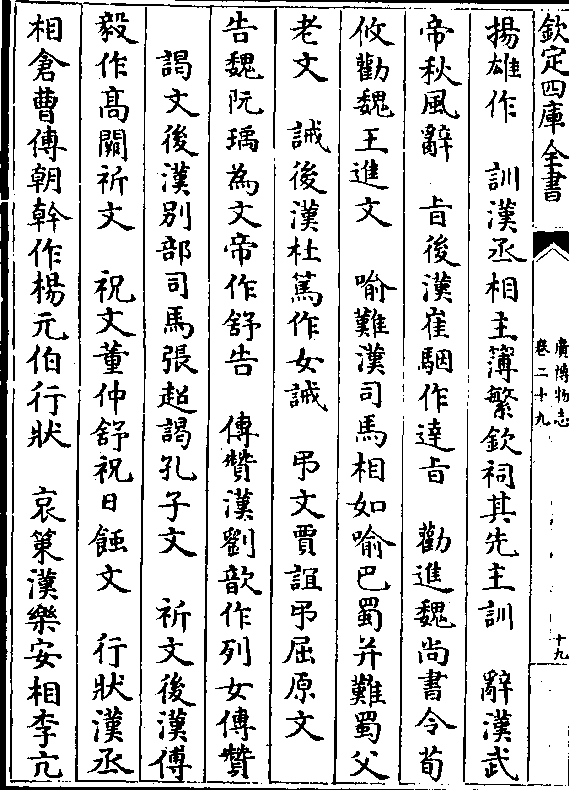 欽定四庫全書
廣博物志
卷二十九
十九
揚雄作　訓漢丞相主簿繁欽祠其先主訓　辭漢武
帝秋風辭　旨後漢崔駰作達旨　勸進魏尚書令荀
攸勸魏王進文　喻難漢司馬相如喻巴蜀并難蜀父
老文　誡後漢杜篤作女誡　弔文賈誼弔屈原文
告魏阮瑀為文帝作舒告　傳贊漢劉歆作列女傳贊
謁文後漢别部司馬張超謁孔子文　祈文後漢傅
毅作髙闕祈文　祝文董仲舒祝日蝕文　行狀漢丞
相倉曹傅朝幹作楊元伯行狀　哀策漢樂安相李亢